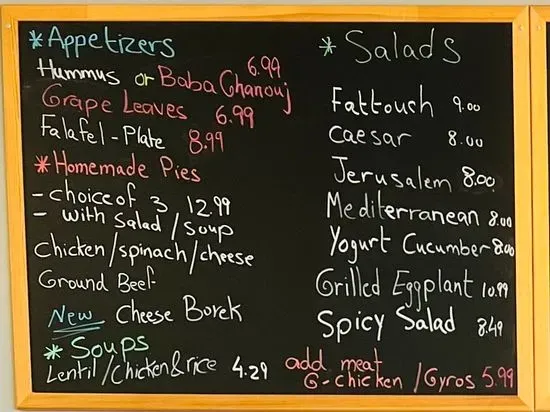 *Appetizers
6.99
Hummus or Baba Ghanouj
Grape Leaves 6.99
Falafel-Plate 8.99
*Homemade Pies
- choice of 3 12.99
- with Salad/soup
Chicken/spinach/cheese
Ground Beef
New Cheese Borek
* Soups
Lentil/Chicken&rice 4.29
* Salads
Fattouch 9.00
Caesar 8.00
Jerusalem 8.00
Mediterranean 8.00
Yogurt Cucumber 8.00
Grilled Eggplant 10.99
Spicy Salad 8.49
add meat
G-chicken /Gyros 5.99